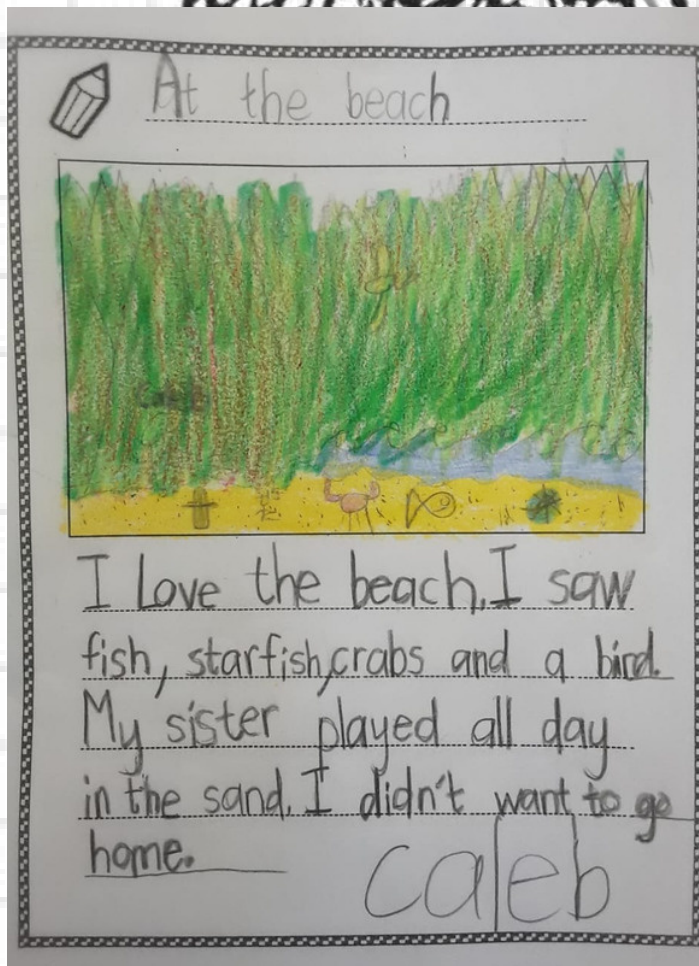 At the beach
I Love the beach. I saw
fish, starfish, crabs and a bird.
My sister played all day
in the sand. I didn't want to go
home.
caleb